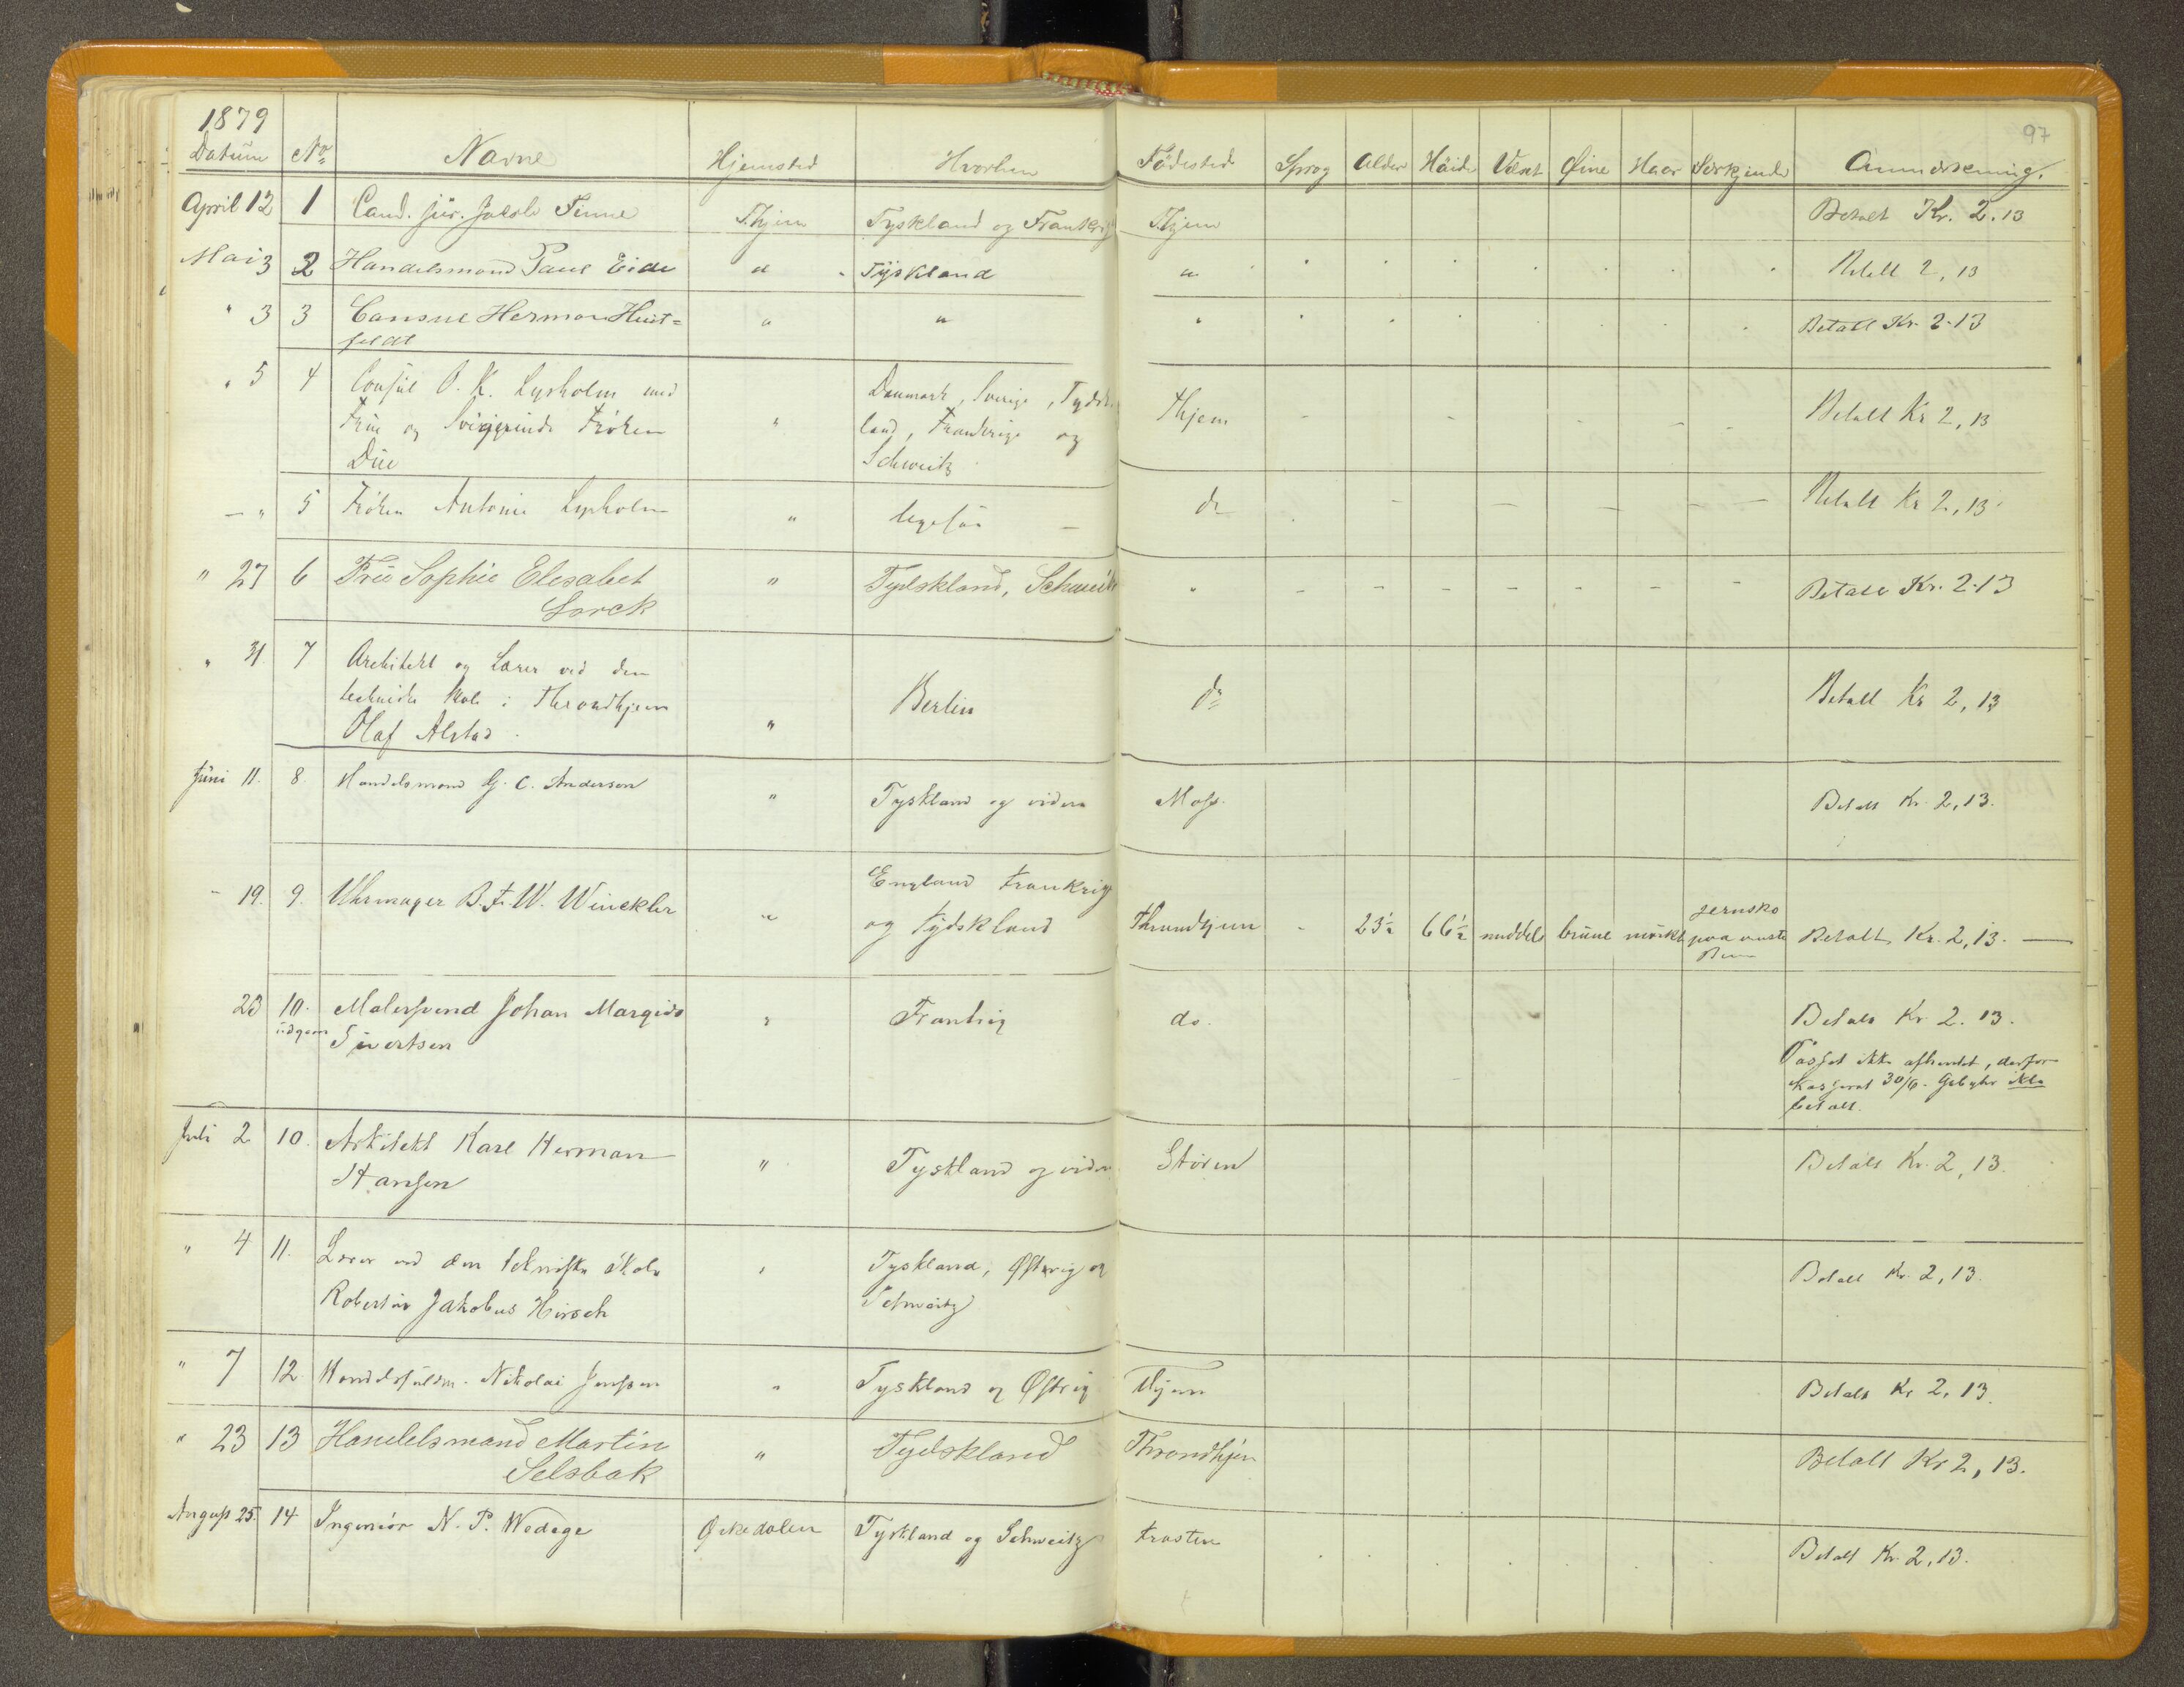 1879
97
Datum No Navne Hjemsted Hvorhen Födested Sprog Alder Höide Vext Øine Haar Særkjende Anmærkning.
April 12 1 Cand. jur. Jakob Finne Thjem Tyskland og Frankrig Thjem Betalt Kr. 2.13
Mai 3 2 Handelsmand Paul Eide " Tyskland " Betalt 2,13
" 3 3 Consul Herman Huit= " " " Betalt Kr. 2.13
feldt
" 5 4 Consul O. K. Lysholm med Danmark, Sverige, Tydsk
Frue og Svigerinde Fröken " land, Frankrige og Thjem Betalt Kr 2,13
Due Schweitz
— " 5 Fröken Antonie Lysholm " ligesaa — do Betalt Kr 2,13
" 27 6 Frue Sophie Elesabet " Tydskland, Schweitz " Betalt Kr. 2.13
Lorck
" 31 7 Architekt og Lærer ved den
techniske Skole i Throndhjem Berlin do Betalt Kr 2,13
Olaf Alstad "
Juni 11. 8. Handelsmand G. C. Anderson " Tyskland og videre Moss. Betalt Kr. 2,13.
- 19. 9. Uhrmager B. F. W. Winckler " England Frankrig
og Tydskland Throndhjem - 23½ 66½ middels brune mörkt jernsko
paa venste Betalt Kr. 2,13. —
Ben
23 10. Malersvend Johan Margido " Frankrig do. Betalt Kr 2.13.
udgaar Sivertsen
Passet ikke afhentet, derfor
kasseret 30/6. Gebyhr ikke
betalt.
Juli 2 10. Arkitekt Karl Herman " Tyskland og videre Stören Betalt Kr. 2,13.
Hansen
" 4 11. Lærer ved den tekniske Skole " Tyskland, Østerig og Betalt Kr. 2,13.
Jakobus Hirsch Schweitz
" 7 12 Nikolai Jenssen " Tyskland og Østrig Thjem Betalt Kr 2,13.
" 23 13 Handelsmand Martin " Tydskland Throndhjem Betalt Kr 2,13.
Selsbak
August 25. 14 Ingeniör N. P. Wedege Orkedalen Tyskland og Schweitz Frosten Betalt Kr. 2,13.